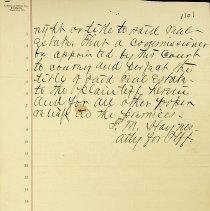 1101
right or title to said real
estate, that a commissioner
be appointed by this Court
to convey and set out the
title of said real estate
to the Plaintiff herein
and for all other proper
relief in the premises.
Atty for Plff.